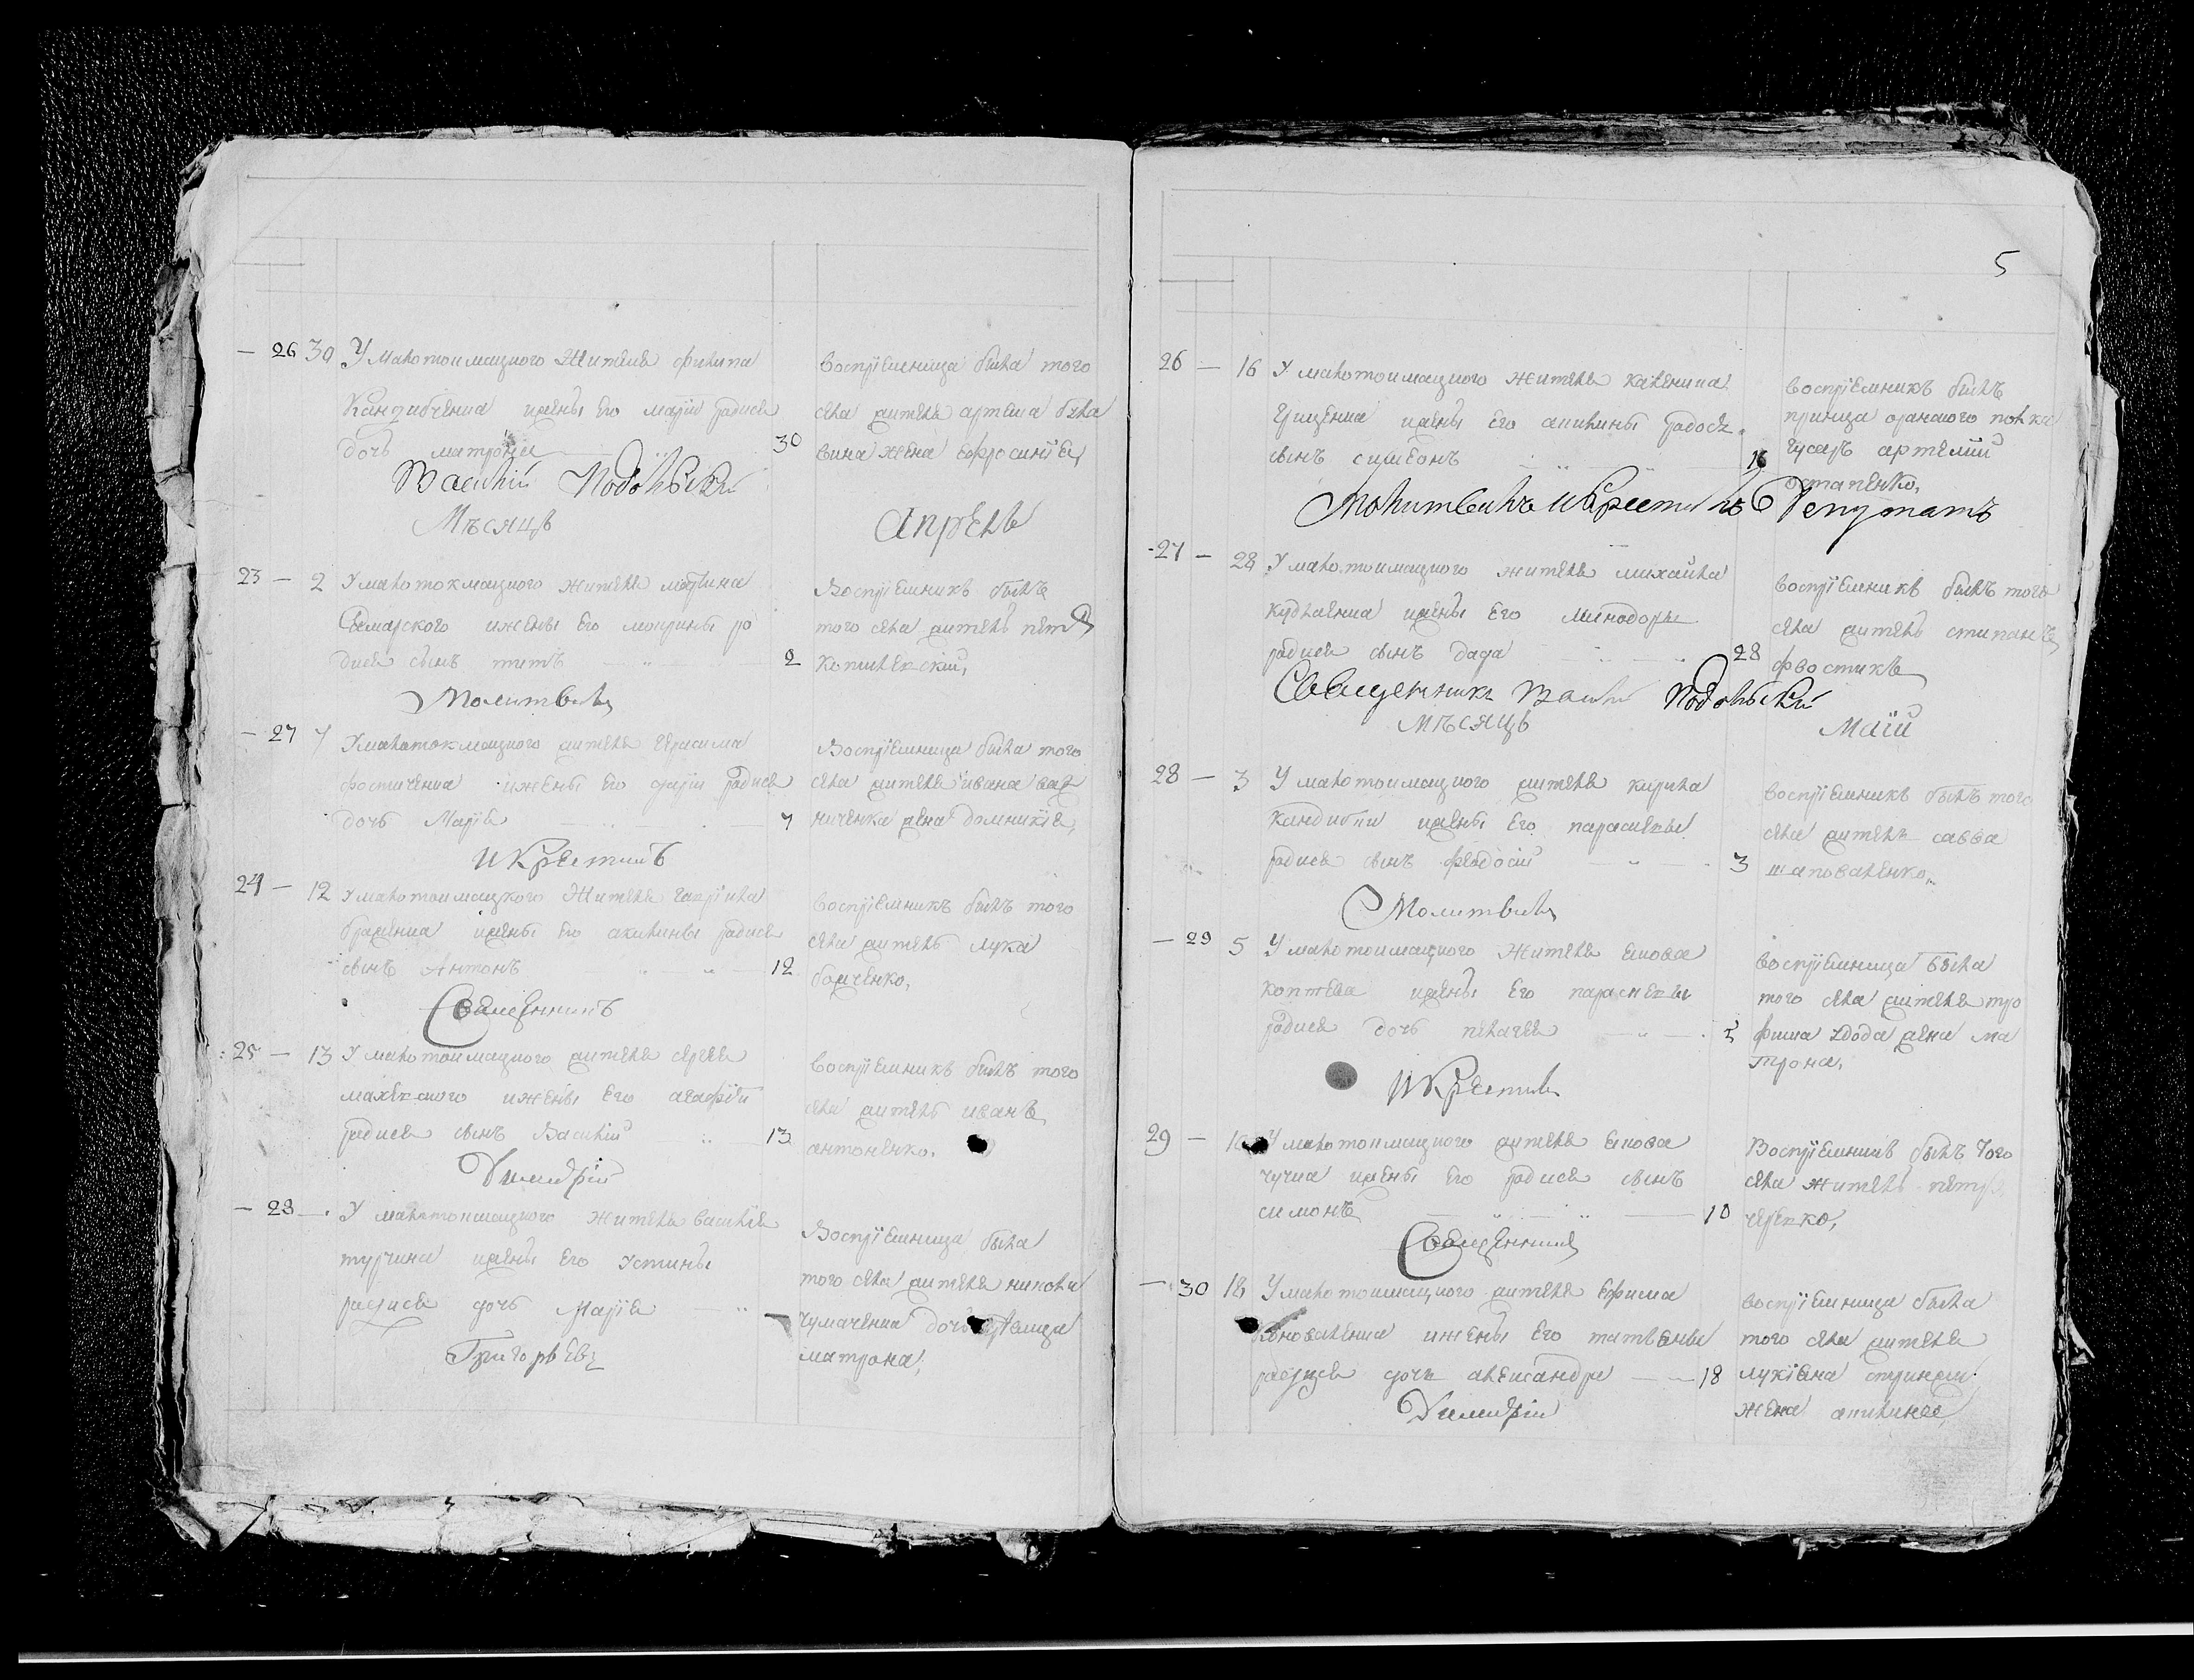 — 26 30 У малотокмацкого жителя филипа
Кандибченка ижены Его марїи родися
дочь матрона 30
воспрїемница была того
села жителя артема
жена Ефросинїя,
Василїй Подолъскїй
Мѣсяцъ Апрель
23 — 2 У малотокмацкого жителя мартина
Самарского ижены Его мокрины ро
дися сынъ титъ 2
Воспрїемникъ былъ
того села житель петръ
Копилскїй,
Молитвилъ
— 27 7 У малотокмацкого жителя герасима
фостиченка ижены Его дарїи родися
дочь Марїя 7
Воспрїемница была того
села жителя ивана
жена домникїя,
И Крестилъ
24 — 12 У малотокмацкого Жителя гаврїила
браженка ижены Его акилины родися
сынъ Антонъ 12
воспрїемникъ былъ того
села житель лука
бойченко,
Священникъ
25 — 13 У малотокмацкого жителя сергея
ижены Его агафїи
родися сынъ Василїй 13
воспрїемникъ былъ того
села житель иванъ
антоненко,
Димитрїй
— 28 — У малотокмацкого жителя василїя
турчина ижены Его устины
родися дочь Марїя
Воспрїемница была
того села жителя николы
чумаченка дочь девица
матрона,
Григорьевъ
5
26 — 16 У малотокмацкого жителя каленика
грищенка ижены Его акилины родися
сынъ симеонъ 16
воспрїемникъ былъ
принца оранского полка
гусаръ артемїй
остапенко,
Молитвилъ и Крестилъ Депутатъ
27 — 28 У малотокмацкого жителя михайла
кудлаенка ижены Его минодоры
родися сынъ дада 28
воспрїемникъ былъ того
села житель стипанъ
фвостикъ
Священникъ Василїй Подолъскїй
мѣсяцъ маїй
28 — 3 У малотокмацкого жителя кирила
кандибки ижены Его параскевы
родися сынъ феодосїй 3
воспрїемникъ былъ того
села житель савва
шаповаленко,
Молитвилъ
— 29 5 У малотокмацкого жителя якова
коптева ижены Его параскевы
родися дочь пелагея 5
воспрїемница была
того села жителя тро
фима удода жена ма
трона,
И Крестилъ
29 — 10 У малотокмацкого жителя якова
чучка ижены Его родися сынъ
симонъ 10
Воспрїемникъ былъ того
села житель петръ
черезко,
Священникъ
— 30 18 У малотокмацкого жителя Ефима
коноваленка ижены Его татьяны
родися дочь александра 18
воспрїемница была
того села жителя
лукїана
жена акилина,
Димитрїй